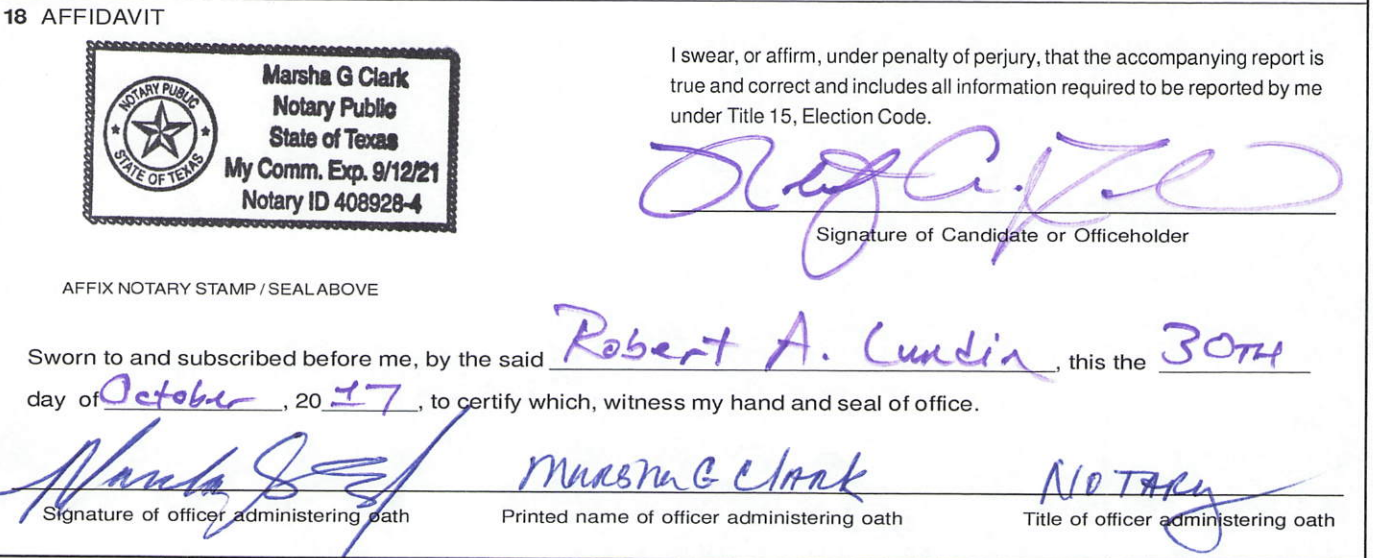 18 AFFIDAVIT
NOTARY PUBLIC
STATE OF TEXAS
Marsha G Clark
Notary Public
State of Texas
My Comm. Exp. 9/12/21
Notary ID 408928-4
I swear, or affirm, under penalty of perjury, that the accompanying report is
true and correct and includes all information required to be reported by me
under Title 15, Election Code.
Signature of Candidate or Officeholder
AFFIX NOTARY STAMP / SEAL ABOVE
Sworn to and subscribed before me, by the said Robert A. Lundin, this the 30TH
day of October, 20 17, to certify which, witness my hand and seal of office.
Marsha G Clark NOTARY
Signature of officer administering oath Printed name of officer administering oath Title of officer administering oath